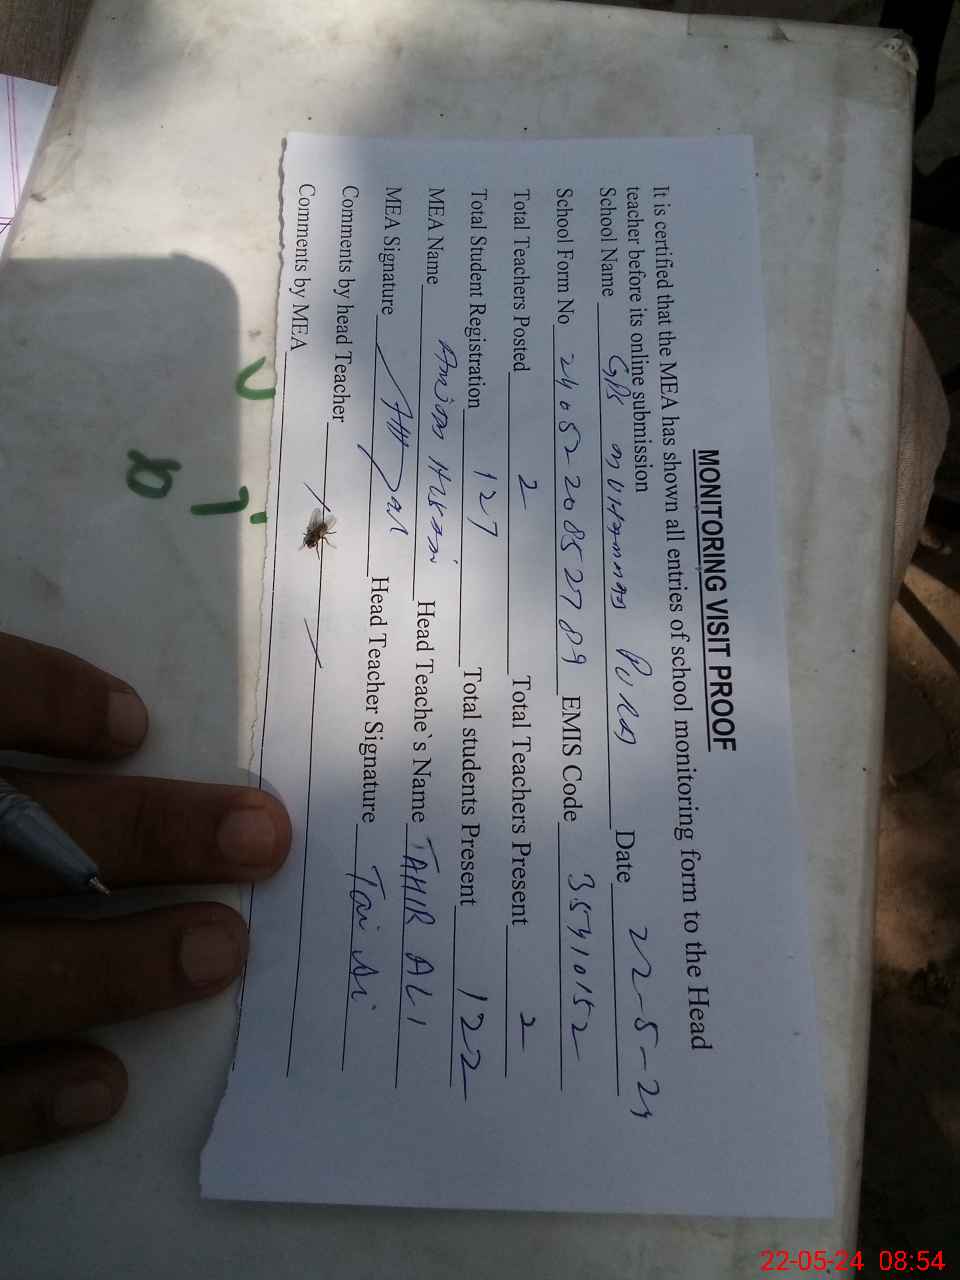 MONITORING VISIT PROOF
It is certified that the MEA has shown all entries of school monitoring form to the Head
teacher before its online submission
School Name GPS MUHAMMAD PURA Date 22-5-24
School Form No 24052208527 89 EMIS Code 35410152
Total Teachers Posted 2 Total Teachers Present 2
Total Student Registration 127 Total students Present 122
MEA Name Hussain Head Teache`s Name TAHIR ALI
MEA Signature Head Teacher Signature
Comments by head Teacher
Comments by MEA
22-05-24 08:54